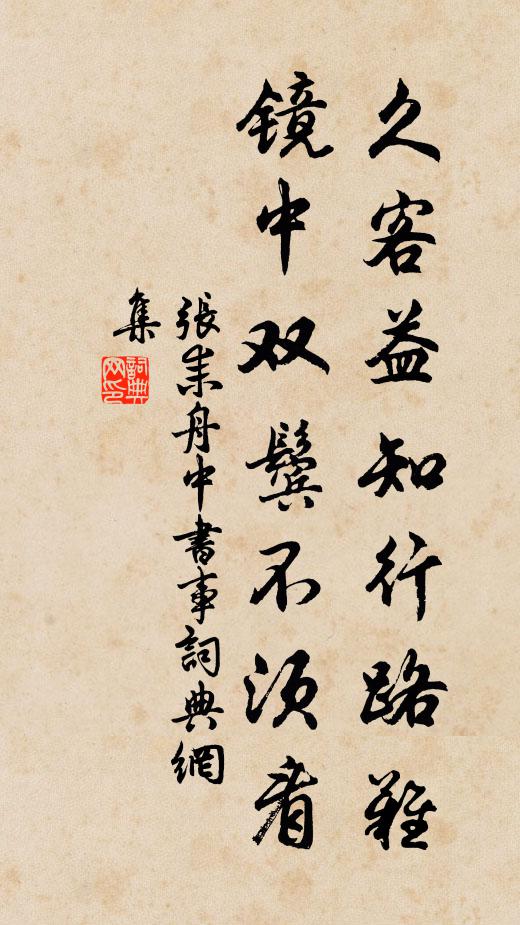 久客益知行路难
镜中双鬓不须看
張耒舟中書事詞典網
集
詞典
网印